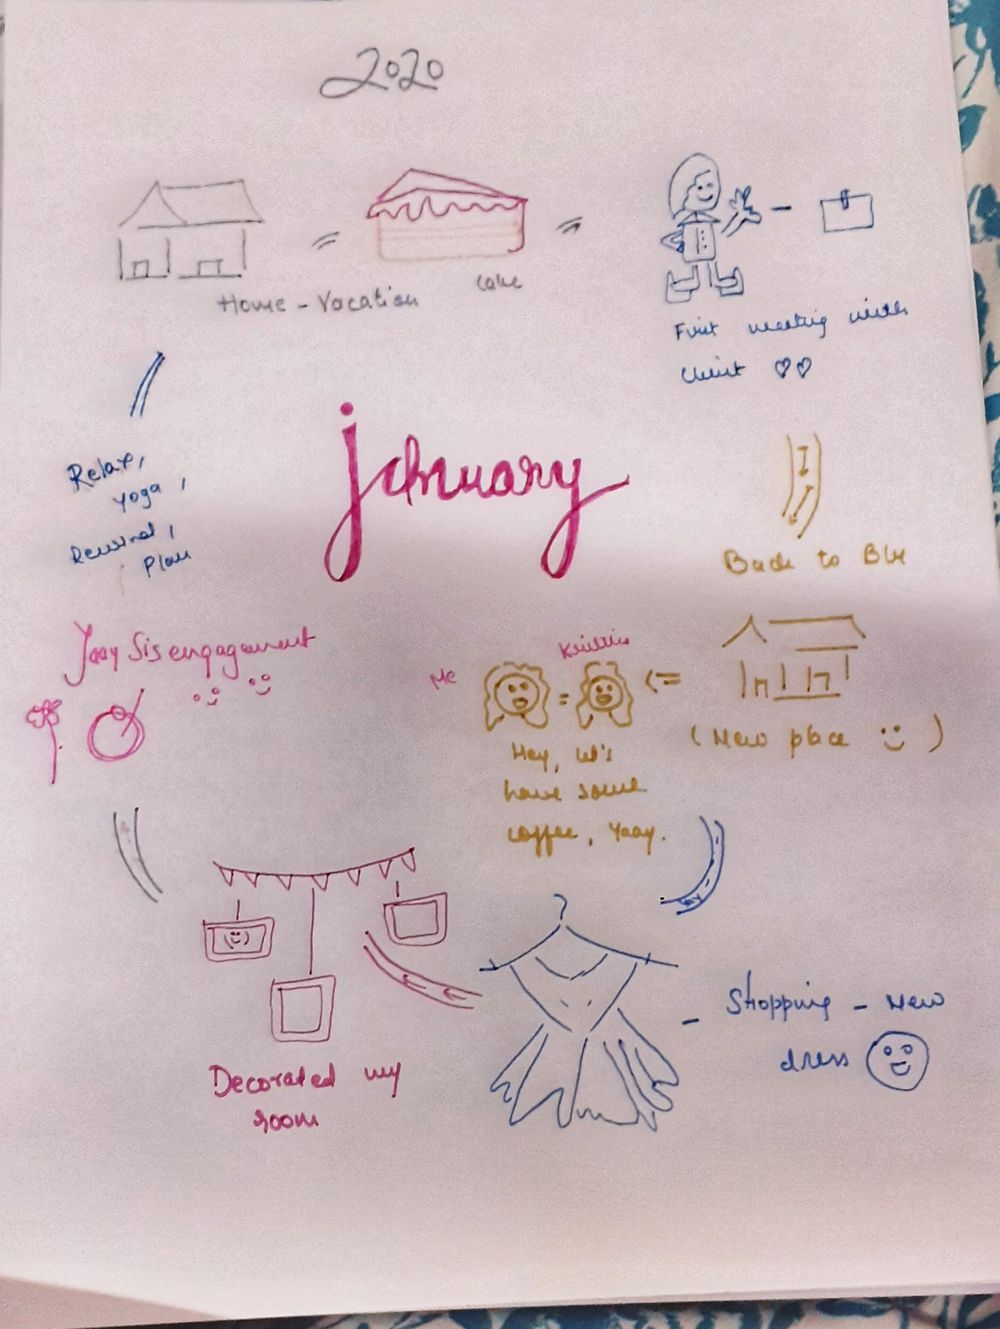 2020
Home - Vacation
cake
First meeting with
client ♡♡
january
Relax,
yoga,
Plan
Back to Blr
Yaay Sis engagement
Me
(New place :) )
Hey, let's
have some
coffee, Yaay.
Shopping - New
dress
Decorated my
room